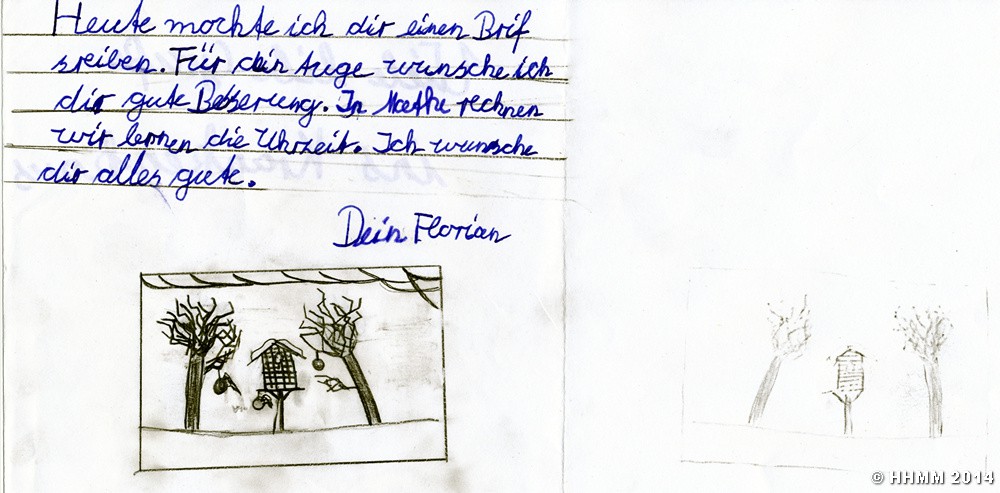 Heute mochte ich dir einen Brif
sreiben. Für dein Auge wunsche ich
dir gute Besserung. In Mathe rechnen
wir lernen die Uhrzeit. Ich wunsche
dir alles gute.
Dein Florian
© HHMM 2014